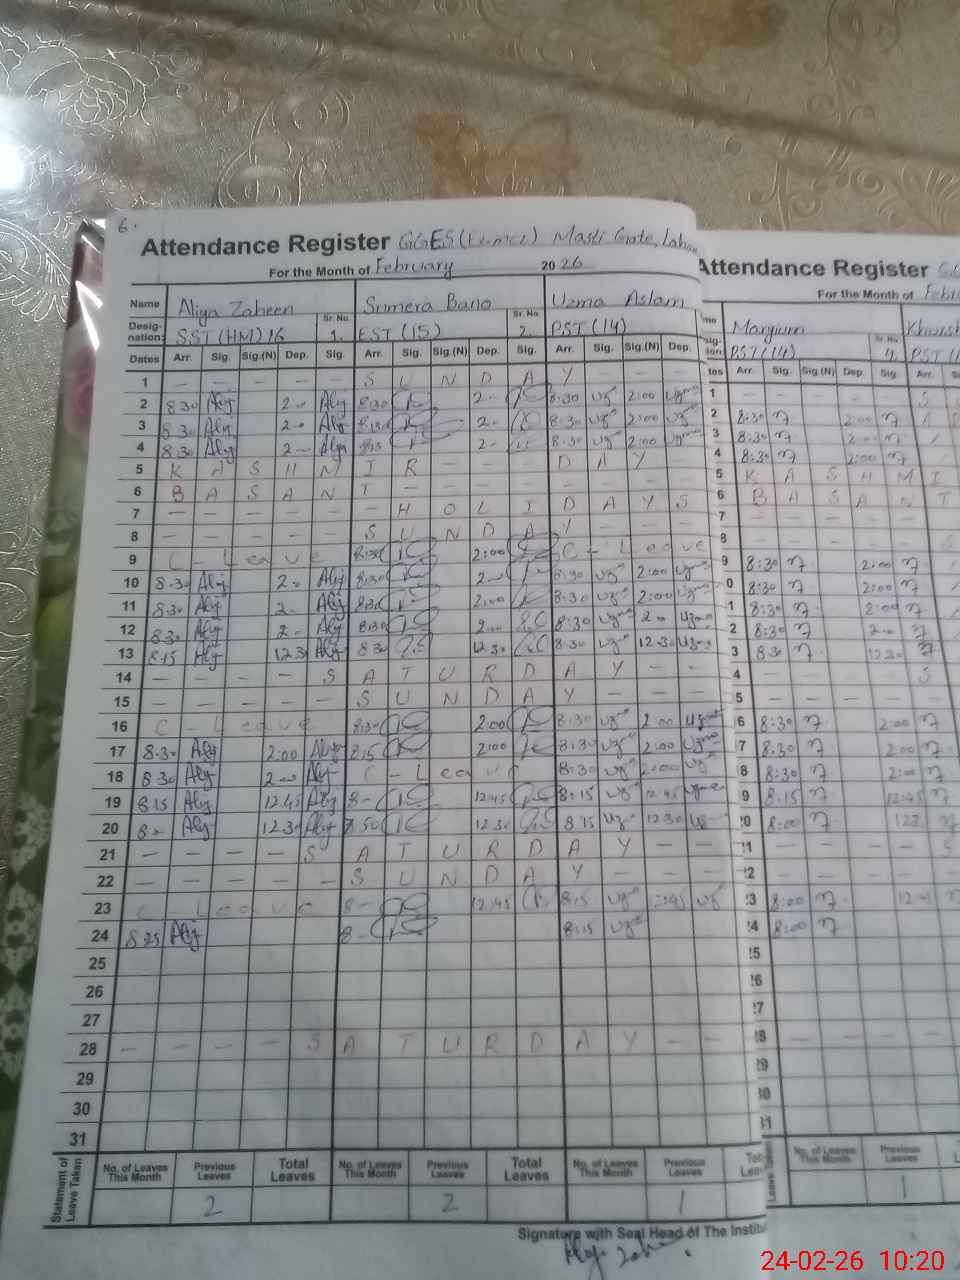 6.
Attendance Register GGES (Lemci) Masti Gate, Lahore
For the Month of February 2026
Name Aliya Zaheen Sumera Bano Uzma Aslam
Designation: SST (HM) 16 Sr. No. 1. EST (15) Sr. No. 2. PST (14)
Dates Arr. Sig. Sig.(N) Dep. Sig. Arr. Sig. Sig.(N) Dep. Sig. Arr. Sig. Sig.(N) Dep.
1 — — — — — S U N D A Y — — —
2 8.30 Alj 2— Alj 8:30 2— 8:30 uz 2:00 uzma
3 8.30 Alj 2— Alj 8:30 2— 8:30 uz 2:00 uz
4 8.30 Alj 2— Alj 2— 8:30 uz 2:00 uzma
5 K A S H M I R — — — D A Y — —
6 B A S A N T — — — — — — —
7 — — — — — — H O L I D A Y S
8 — — — — — S U N D A Y — — —
9 C - Leave 8:30 2:00 C - Leave
10 8.30 Alj 2— Alj 8:30 2— 8:30 uz 2:00 uzma
11 8.30 Alj 2— Alj 8:30 2:00 8:30 uz 2:00 uzma
12 8.30 Alj 2— Alj 8:30 2:00 8:30 uzma 2— uzma
13 8.15 Alj 12.3 Alj 8 30 12.30 8:30 uz 12.30 uzma
14 — — — — S A T U R D A Y — —
15 — — — — — S U N D A Y — — —
16 C - Leave 8:30 2:00 8:30 uz 2:00 uzma
17 8.30 Alj 2:00 Alj 8.15 2:00 8:30 uz 2:00 uzma
18 8.30 Alj 2— Alj C - Leave 8:30 uz 2:00 uz
19 8.15 Alj 12.45 Alj 8— 12:45 8:15 uz 12.45 uzma
20 8— Alj 12.30 Alj 8.50 12.30 8 15 uz 12 30 uz
21 — — — — S A T U R D A Y — —
22 — — — — — S U N D A Y — — —
23 C - Leave 8— 12:45 8.15 uz 12:45 uz
24 8.25 Alj 8— 8:15 uz
25
26
27
28 — — — — S A T U R D A Y — —
29
30
31
Statement of Leave Taken
No. of Leaves This Month Previous Leaves Total Leaves No. of Leaves This Month Previous Leaves Total Leaves No. of Leaves This Month Previous Leaves
2 2 1
Signature with Seal Head of The Institu
Attendance Register
For the Month of Febr
Maryium
PST (14) Sr. No. 4. PST
Arr. Sig. Sig.(N) Dep. Sig. Arr.
1 S
2 8:30 2:00
3 8:30 2:00
4 8:30 2:00
5 K A S H M I
6 B A S A N T
7 — — — —
8 — — — — S
9 8:30 2:00
0 8:30 2:00
1 8:30 2:00
2 8:30 2:00
3 8 30 12 30
4 — — — — S
5 — — — —
6 8:30 2:00
7 8:30 2:00
8 8:30 2:00
9 8:15 12:45
0 8:00
1 — — — — S
2 — — — —
3 8:00 12:45
4 8:00
5
6
7
8
9
0
1
No. of Leaves This Month Previous Leaves
1
24-02-26 10:20